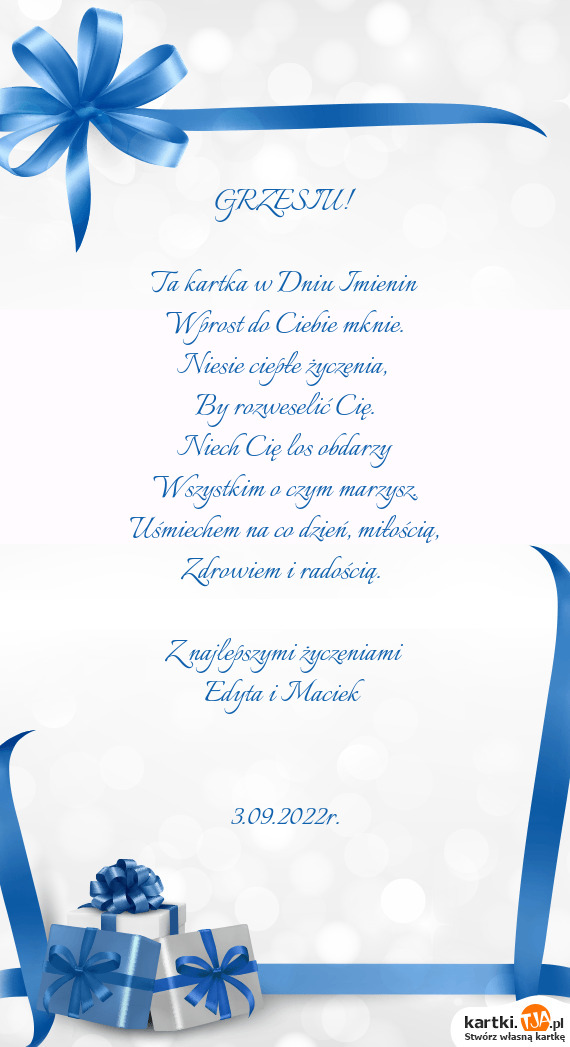 GRZESIU!
Ta kartka w Dniu Imienin
Wprost do Ciebie mknie.
Niesie ciepłe życzenia,
By rozweselić Cię.
Niech Cię los obdarzy
Wszystkim o czym marzysz,
Uśmiechem na co dzień, miłością,
Zdrowiem i radością.
Z najlepszymi życzeniami
Edyta i Maciek
3.09.2022r.
kartki.TJA.pl
Stwórz własną kartkę